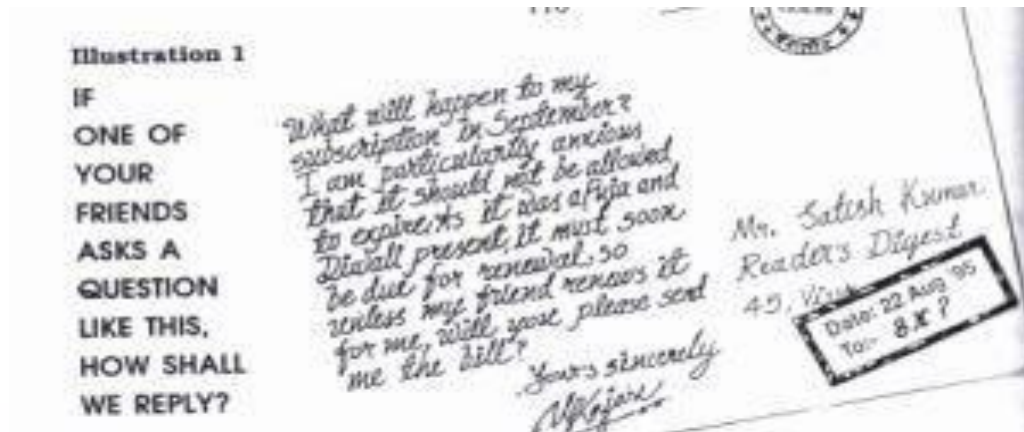 Illustration 1
IF
ONE OF
YOUR
FRIENDS
ASKS A
QUESTION
LIKE THIS,
HOW SHALL
WE REPLY?
What will happen to my
subscription in September?
I am particularly anxious
that it should not be allowed
to expire. As it was a Puja and
Diwali present, it must soon
be due for renewal, so
unless my friend renews it
for me, will you please send
me the bill?
Yours sincerely
Mr. Satish Kumar
Reader's Digest
45,
Date: 22 Aug '95
To:-